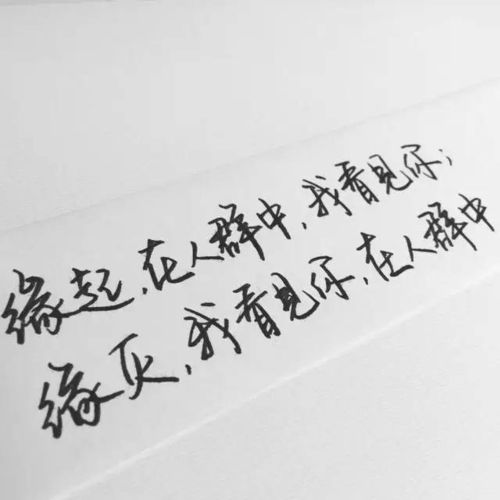 缘起，在人群中，我看见你；
缘灭，我看见你，在人群中